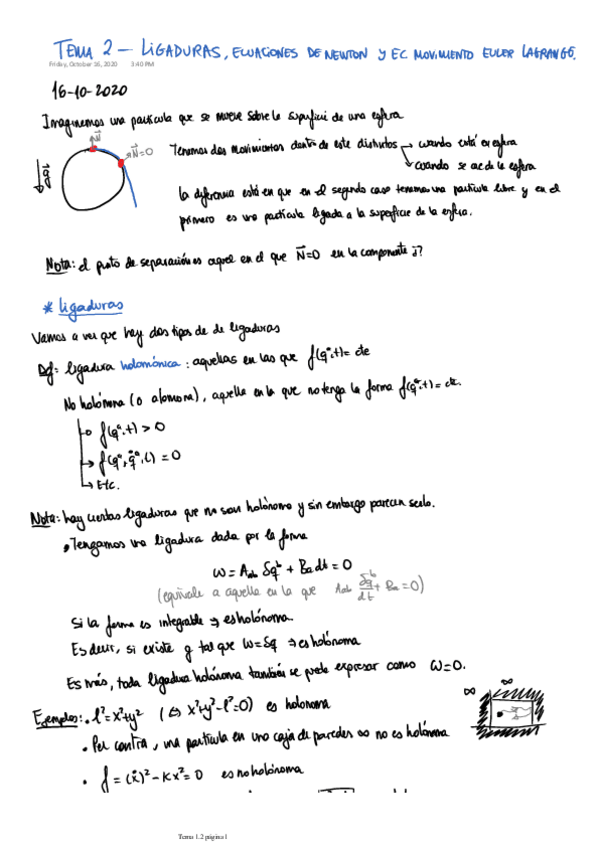 TEMA 2 - LIGADURAS, ECUACIONES DE NEWTON Y EC MOVIMIENTO EULER LAGRANGE.
Friday, October 16, 2020 3:40 PM
16-10-2020
Imaginemos una partícula que se mueve sobre la superficie de una esfera
N
N=0
Tenemos dos movimientos dentro de este distintos → cuando está en esfera
→ cuando se cae de la esfera
La diferencia está en que en el segundo caso tenemos una partícula libre y en el
primero es una partícula ligada a la superficie de la esfera.
Nota: el punto de separación es aquel en el que N=0 en la componente j?
* Ligaduras
Vamos a ver que hay dos tipos de de ligaduras
Df: ligadura holonómica: aquellas en las que f(qª,t)= cte
No holónoma (o ), aquella en la que no tenga la forma f(qª,t)= cte.
→ f(qª,t) > 0
→ f(qª, q̇ª, t) = 0
→ Etc.
Nota: hay ciertas ligaduras que no son holónomo y sin embargo parecen serlo.
• Tengamos una ligadura dada por la forma
ω = Aab δqᵇ + Ba dt = 0
(equivale a aquella en la que Aab δqᵇ/dt + Ba = 0)
Si la forma es integrable ⇒ es holónoma.
Es decir, si existe g tal que ω=δg ⇒ es holónoma
Es más, toda ligadura holónoma también se puede expresar como ω=0.
Ejemplos: • l²=x²+y² (⇔ x²+y²-l²=0) es holonoma
∞ ∞
• Por contra, una partícula en una caja de paredes ∞ no es holónoma
• f = (ẋ)² - Kx² = 0 es no holónoma
Tema 1.2 página 1